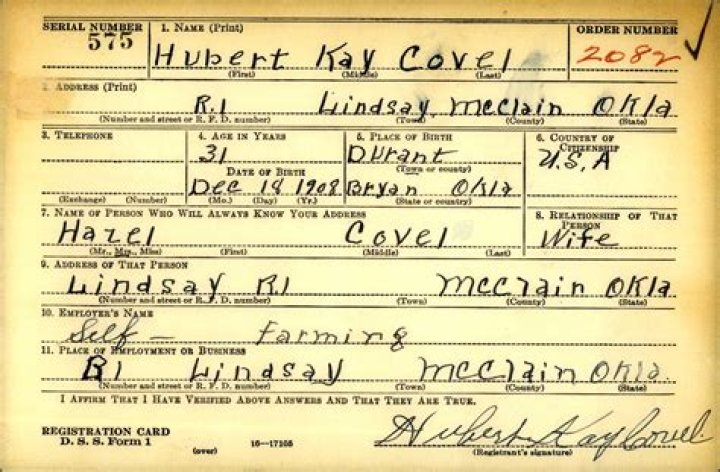 SERIAL NUMBER 1. NAME (Print) ORDER NUMBER
575 Hubert Kay Covel 2082 ✓
(First) (Middle) (Last)
2. ADDRESS (Print)
R.1 Lindsay, McClain Okla
(Number and street or R. F. D. number) (Town) (County) (State)
3. TELEPHONE 4. AGE IN YEARS 5. PLACE OF BIRTH 6. COUNTRY OF CITIZENSHIP
31 Durant U.S.A
(Town or county)
DATE OF BIRTH
Dec 18 1908 Bryan Okla
(Exchange) (Number) (Mo.) (Day) (Yr.) (State or country)
7. NAME OF PERSON WHO WILL ALWAYS KNOW YOUR ADDRESS 8. RELATIONSHIP OF THAT PERSON
Hazel Covel Wife
(Mr., Mrs., Miss) (First) (Middle) (Last)
9. ADDRESS OF THAT PERSON
Lindsay R.1 McClain Okla
(Number and street or R. F. D. number) (Town) (County) (State)
10. EMPLOYER'S NAME
Self — Farming
11. PLACE OF EMPLOYMENT OR BUSINESS
R1 Lindsay McClain Okla.
(Number and street or R. F. D. number) (Town) (County) (State)
I AFFIRM THAT I HAVE VERIFIED ABOVE ANSWERS AND THAT THEY ARE TRUE.
REGISTRATION CARD
D. S. S. Form 1 Hubert Kay Covel
(over) 16—17105 (Registrant's signature)